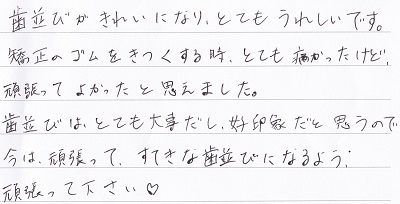 歯並びがきれいになり、とてもうれしいです。
矯正のゴムをきつくする時、とても痛かったけど、
頑張ってよかったと思えました。
歯並びは、とても大事だし、好印象だと思うので
今は、頑張って、すてきな歯並びになるよう、
頑張って下さい♡